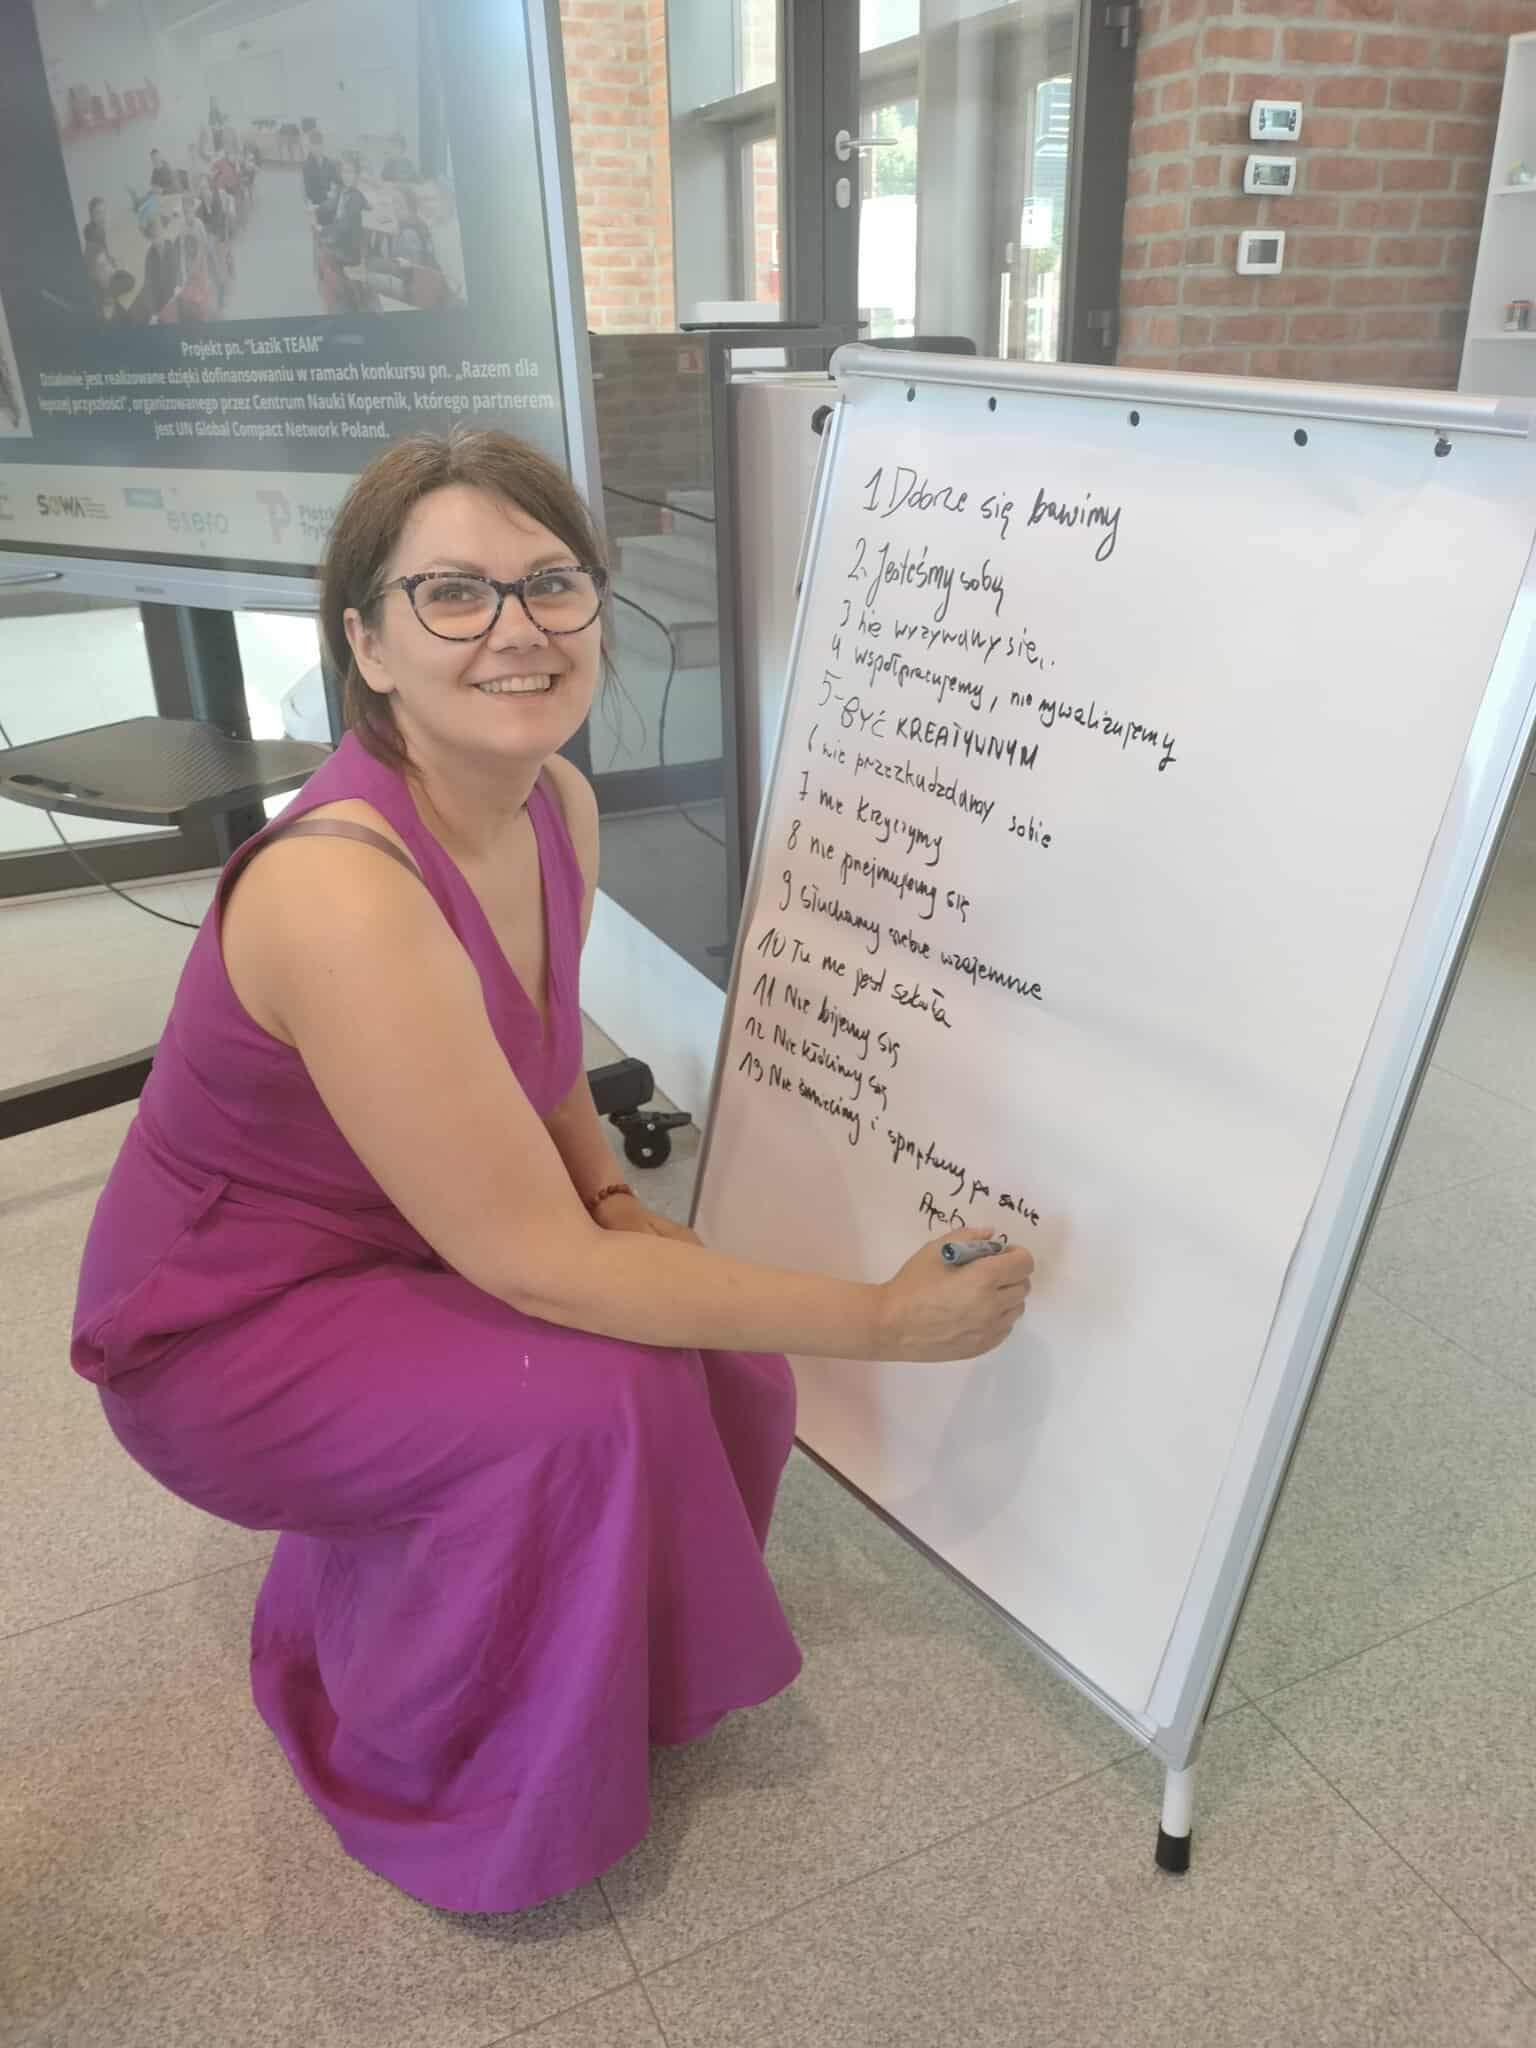 Projekt pn. "Łazik TEAM"
Działanie jest realizowane dzięki dofinansowaniu w ramach konkursu pn. „Razem dla
lepszej przyszłości", organizowanego przez Centrum Nauki Kopernik, którego partnerem
jest UN Global Compact Network Poland.
SOWA
1 Dobrze się bawimy
2. Jesteśmy sobą
3 nie wyzywamy się...
4 współpracujemy, nie rywalizujemy
5-BYĆ KREATYWNYM
6 nie przezkadzdamy sobie
7 nie krzyczymy
8 nie przejmujemy się
9 słuchamy siebie wzajemnie
10 Tu nie jest szkoła
11 Nie bijemy się
12 Nie kłócimy się
13 Nie śmiecimy i sprzątamy po sobie